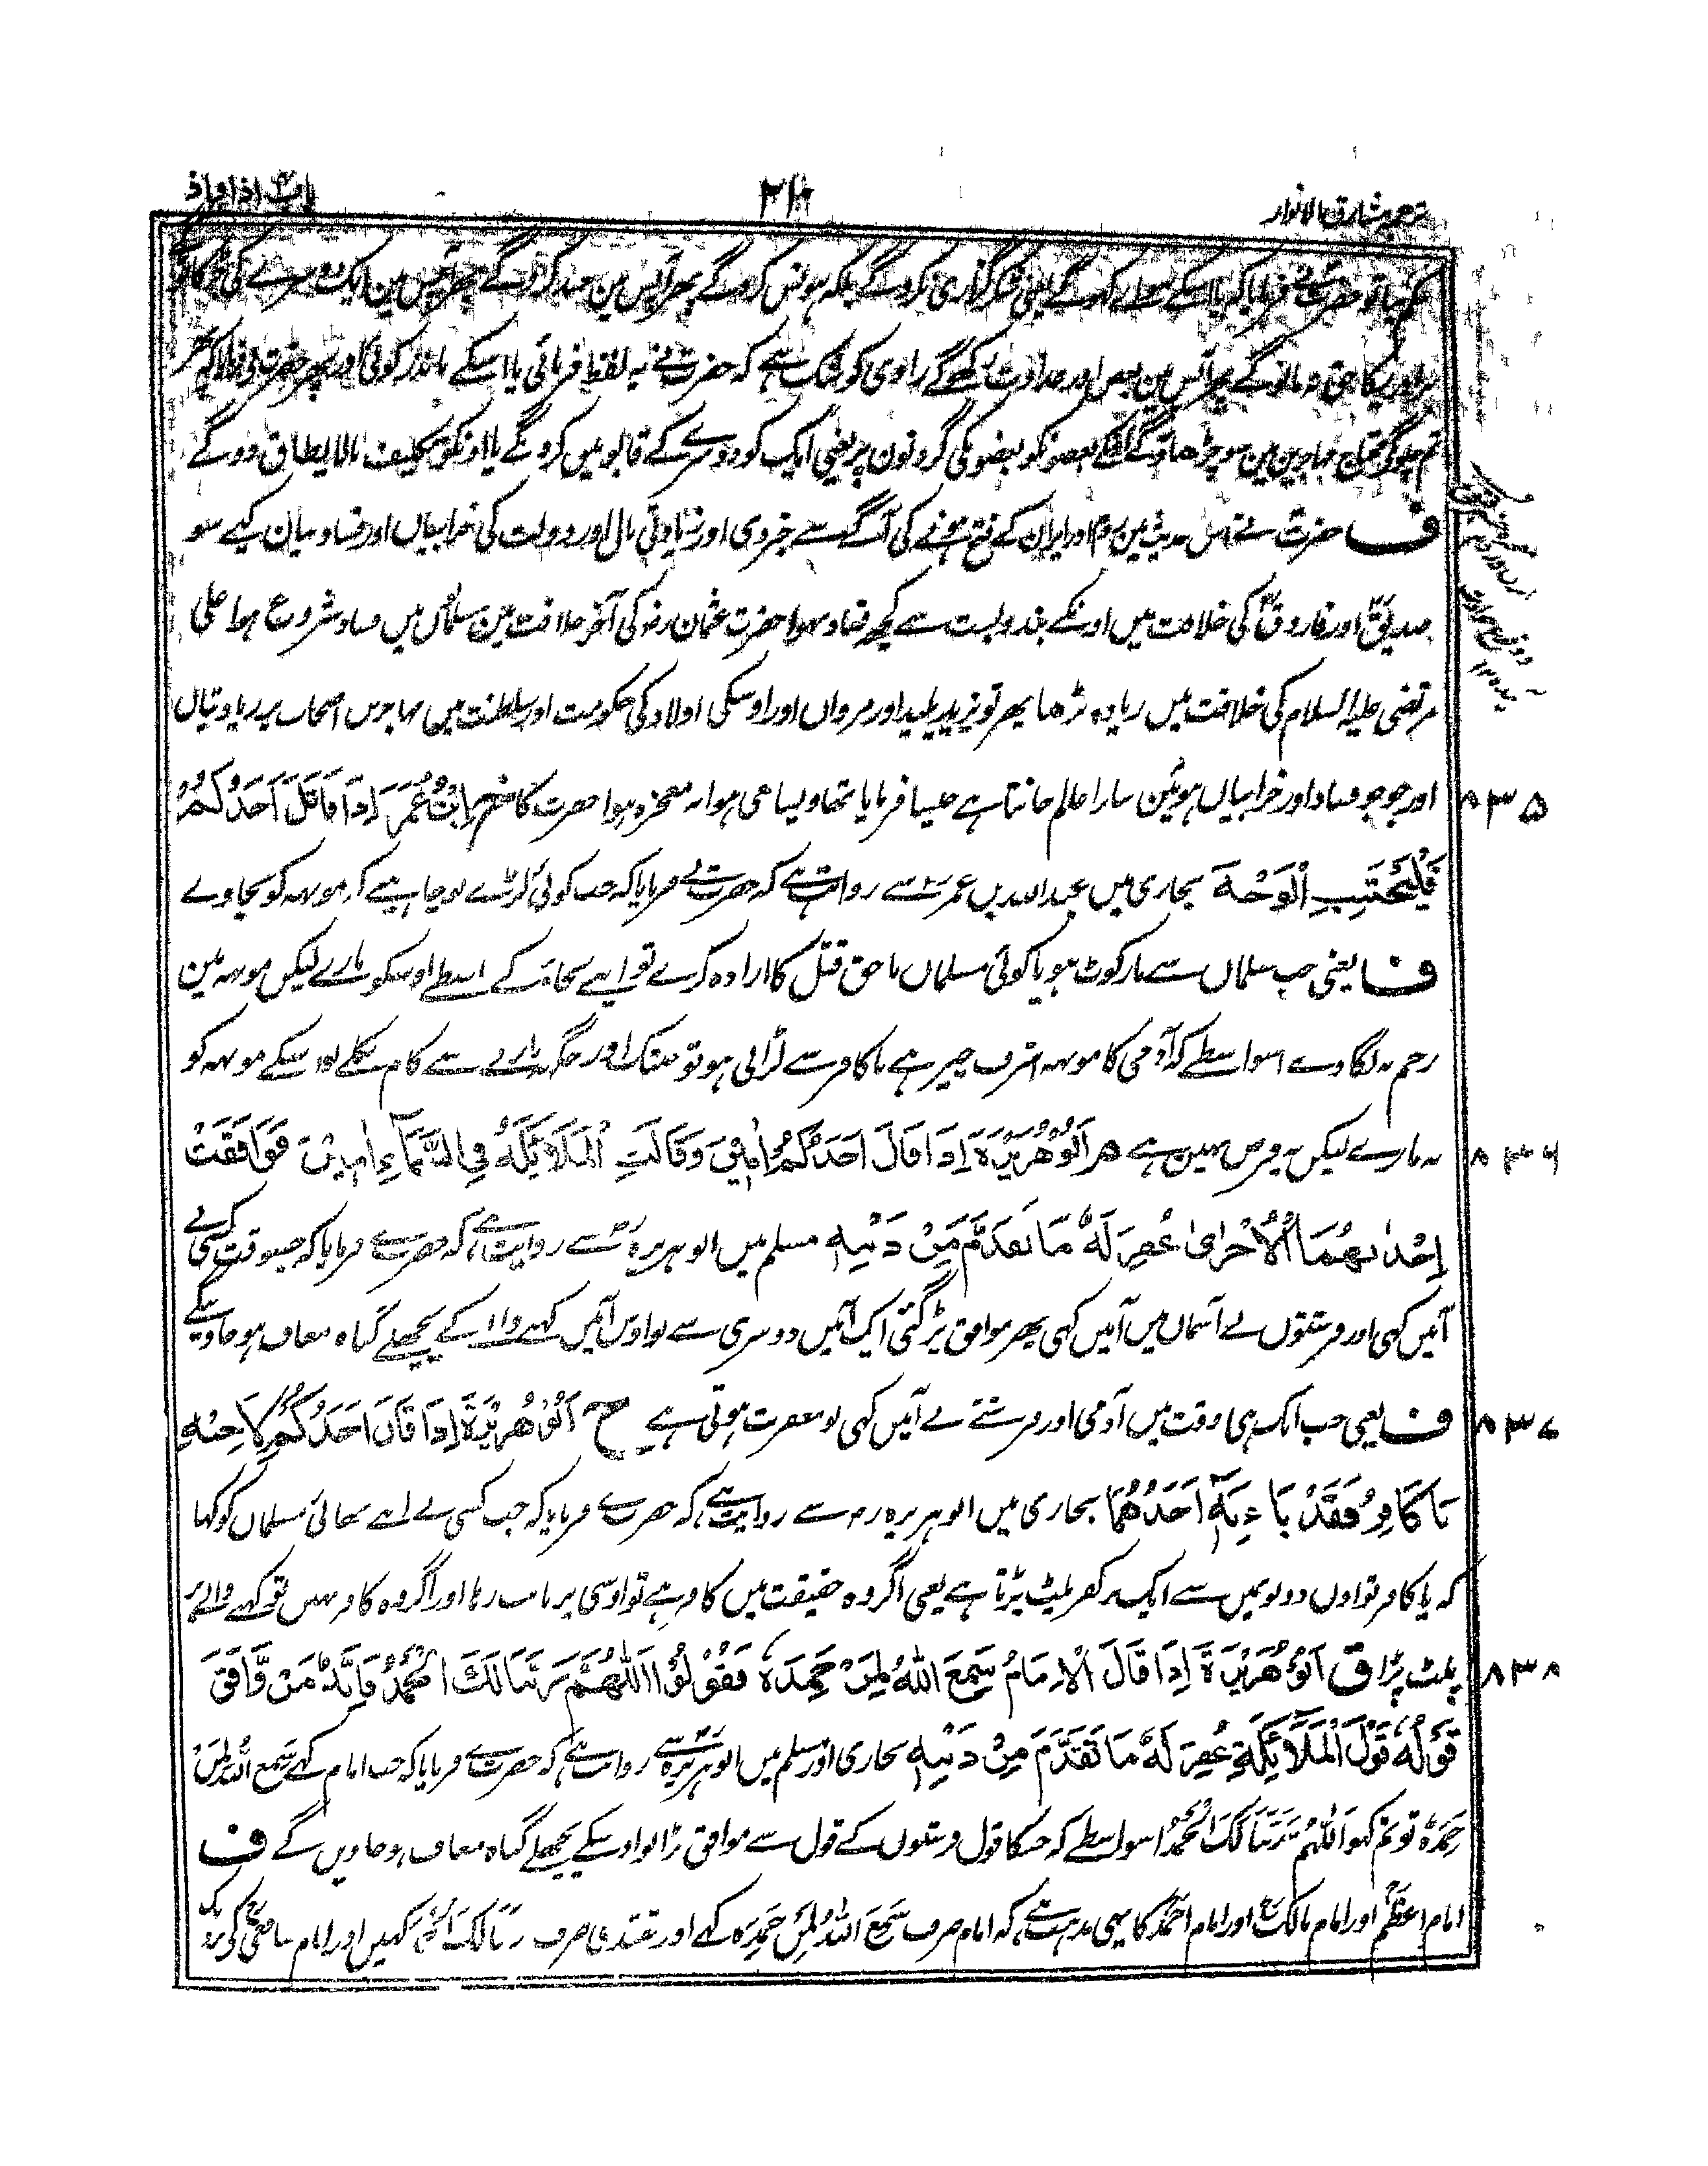 ترجمہ مشارق الانوار
باب اذا و اذ
حکم ہے تو حضرت نے فرمایا کہ یا اسکے سوا کہو گے یعنی شکر گزاری نکرو گے بلکہ ہوس کرو گے پھر آپس مین حسد کرو گے پھر آپس مین ایک دوسرے کی
پھر آپس مین بغض اور عداوت رکھو گے راوی کو شک ہے کہ حضرت نے یہ لفظ فرمائی یا اسکے مانند کوئی اور پھر حضرت نے فرمایا کہ
تم مہاجرین مین سو چڑھاؤ گے بعضونکو بعضونکی گردنون پر یعنی ایک کو دوسرے کے قابو میں کرو گے یا اونکو تکلیف مالا یطاق دو گے
ف حضرت نے اس حدیث مین روم اور ایران کے فتح ہونے کی آگے سے خبر دی اور زیادتی مال اور دولت کی خرابیاں اور فساد بیان کیے سو
صدیقؓ اور فاروقؓ کی خلافت میں اونکے بندوبست سے کچھ فساد نہوا حضرت عثمان رضہ کی آخر خلافت مین مسلمانوں میں فساد شروع ہوا علی
مرتضی علیہ السلام کی خلافت میں زیادہ بڑھا پھر تو یزید پلید اور مروان اور اوسکی اولاد کی حکومت اور سلطنت میں مہاجرین اصحاب پر زیادتیاں
اور جو جو فساد اور خرابیاں ہوئین سارا عالم جانتا ہے جیسا فرمایا تھا ویسا ہی ہوا یہ معجزہ ہوا حضرت کا خ ابْنُ عُمَرَ اِذَا قَاتَلَ اَحَدُكُمْ
۸۳۵
فَلْيَجْتَنِبِ الْوَجْهَ بخاری میں عبداللہ بن عمرؓ سے روایت ہے کہ حضرت نے فرمایا کہ جب کوئی لڑے تو چاہیے کہ مونہہ کو بچاوے
ف یعنی جب مسلمان سے مارکوٹ ہو یا کوئی مسلمان ناحق قتل کا ارادہ کرے تو اپنے بچانے کے واسطے اوسکو مارے لیکن مونہہ مین
زخم نہ لگاوے اسواسطے کہ آدمی کا مونہہ اشرف چیز ہے یا کافر سے لڑائی ہو تو جبتک اور جگہ مارنے سے کام نکلے تو اسکے مونہہ کو
نہ مارے لیکن یہ فرض نہین ہے م اَبُوْهُرَيْرَةَ اِذَا قَالَ اَحَدُكُمْ اٰمِيْنَ وَقَالَتِ الْمَلَائِكَةُ فِي السَّمَآءِ اٰمِيْنَ فَوَافَقَتْ
۸۳۶
اِحْدٰىهُمَا الْاُخْرٰى غُفِرَ لَهٗ مَا تَقَدَّمَ مِنْ ذَنْبِهٖ مسلم میں ابو ہریرہؓ سے روایت ہے کہ حضرت نے فرمایا کہ جسوقت کسی نے
آمین کہی اور فرشتوں نے آسمان میں آمین کہی پھر موافق پڑ گئی ایک آمین دوسری سے تو اوس آمین کہنے والے کے پچھلے گناہ معاف ہو جاوینگے
ف یعنی جب ایک ہی وقت میں آدمی اور فرشتے نے آمین کہی تو مغفرت ہوتی ہے خ اَبُوْ هُرَيْرَةَ اِذَا قَالَ اَحَدُكُمْ لِاَخِيْهِ
۸۳۷
يَا كَافِرُ فَقَدْ بَاءَ بِهٖ اَحَدُهُمَا بخاری میں ابو ہریرہ رضہ سے روایت ہے کہ حضرت نے فرمایا کہ جب کسی نے اپنے بھائی مسلمان کو کہا
کہ یا کافر تو اون دونونمیں سے ایک پر کفر پلٹ پڑتا ہے یعنی اگر وہ حقیقت میں کافر ہے تو اوسی پر ثابت رہا اور اگر وہ کافر نہیں تو کہنے والے پر
پلٹ پڑا ق اَبُوْ هُرَيْرَةَ اِذَا قَالَ الْاِمَامُ سَمِعَ اللّٰهُ لِمَنْ حَمِدَهٗ فَقُوْلُوْا اَللّٰهُمَّ رَبَّنَا لَكَ الْحَمْدُ فَاِنَّهٗ مَنْ وَّافَقَ
۸۳۸
قَوْلُهٗ قَوْلَ الْمَلَآئِكَةِ غُفِرَ لَهٗ مَا تَقَدَّمَ مِنْ ذَنْبِهٖ بخاری اور مسلم میں ابو ہریرہؓ سے روایت ہے کہ حضرت نے فرمایا کہ جب امام کہے سَمِعَ اللّٰهُ لِمَنْ
حَمِدَهٗ تو تم کہو اَللّٰهُمَّ رَبَّنَا لَكَ الْحَمْدُ اسواسطے کہ جسکا قول فرشتوں کے قول سے موافق پڑا تو اوسکے پچھلے گناہ معاف ہو جاویں گے ف
امام اعظمؒ اور امام مالکؒ اور امام احمدؒ کا یہی مذہب ہے کہ امام صرف سَمِعَ اللّٰهُ لِمَنْ حَمِدَهٗ کہے اور مقتدی صرف رَبَّنَا لَكَ الْحَمْدُ کہیں اور امام شافعیؒ کی نزدیک